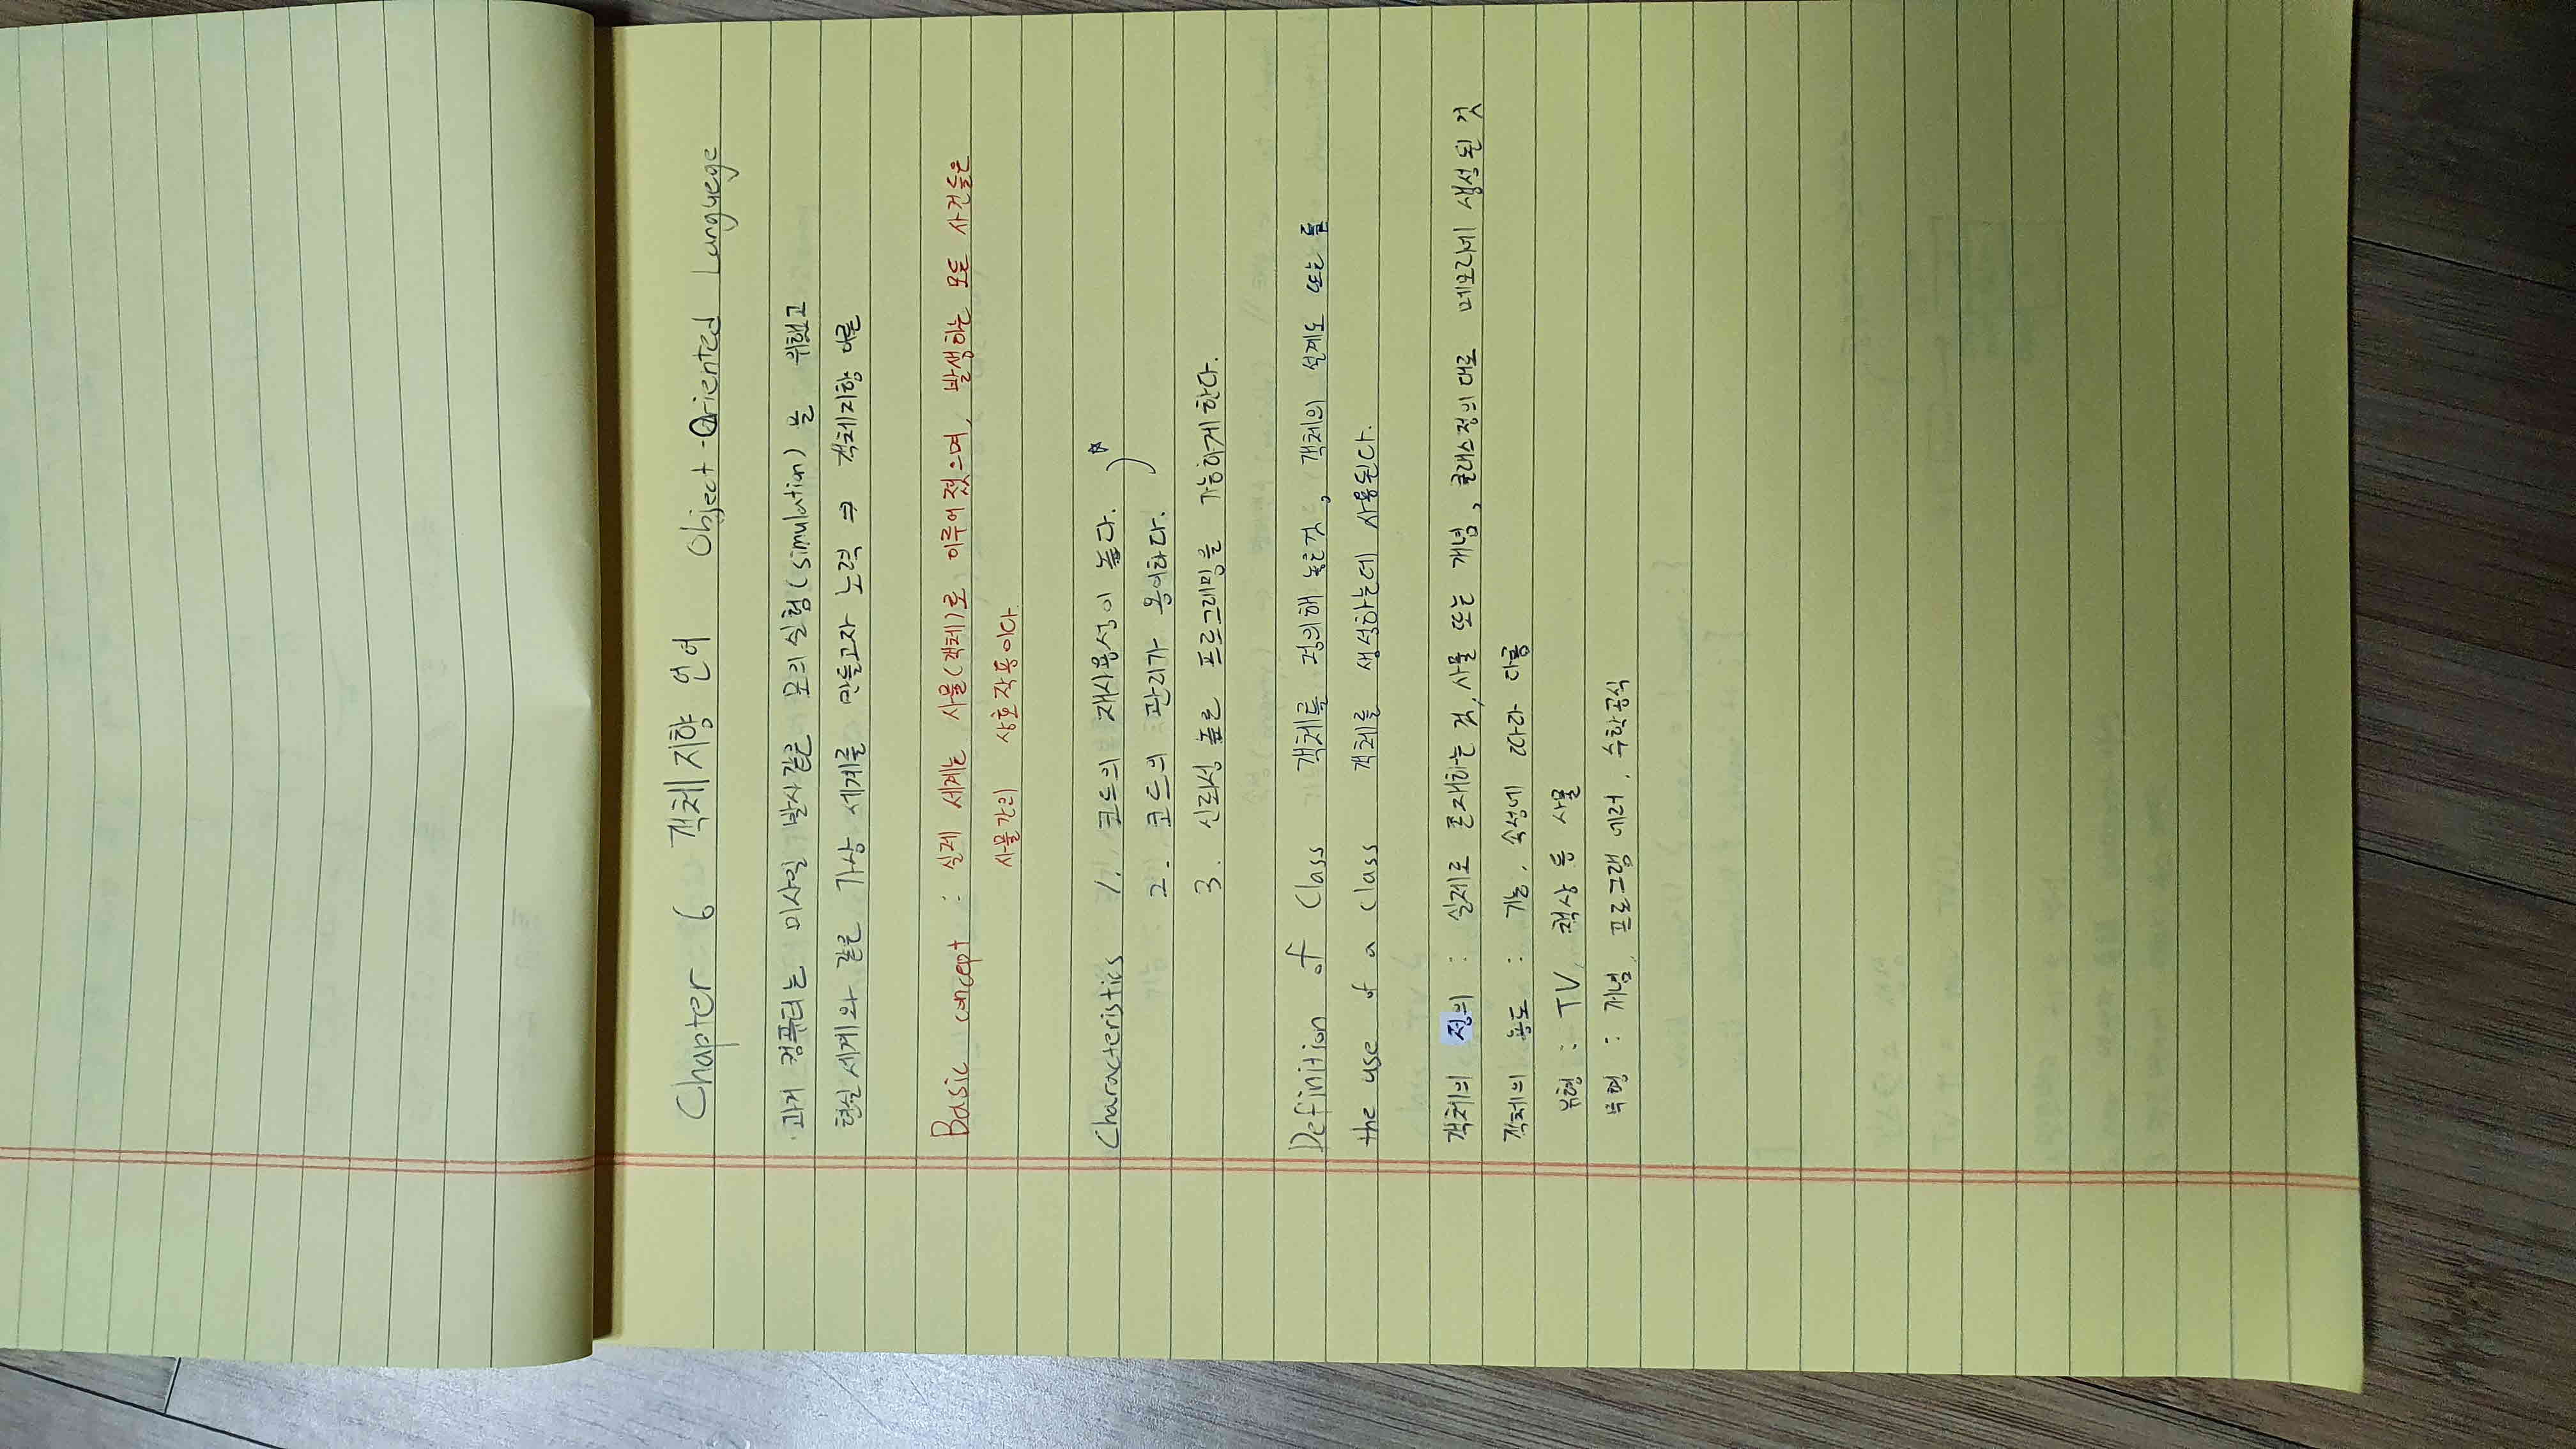 Chapter 6 객체지향 언어 Object-Oriented Languege
과거 컴퓨터는 미사일 발사같은 모의실험(simulation)을 위했고
현실세계와 같은 가상 세계를 만들고자 노력 ⇒ 객체지향 이론
Basic concept : 실제 세계는 사물(객체)로 이루어졌으며, 발생하는 모든 사건들은
사물간의 상호작용이다.
Characteristics 1. 코드의 재사용성이 높다. ☆
2. 코드의 관리가 용이하다.
3. 신뢰성 높은 프로그래밍을 가능하게한다.
Definition of Class 객체를 정의해 놓은것, 객체의 설계도 또는 틀
the use of a class 객체를 생성하는데 사용된다.
객체의 정의 : 실제로 존재하는 것, 사물 또는 개념, 클래스정의대로 메모리에 생성된 것
객체의 용도 : 기능, 속성에 따라 다름
유형 : TV, 책상 등 사물
무형 : 개념, 프로그램 에러, 수학공식